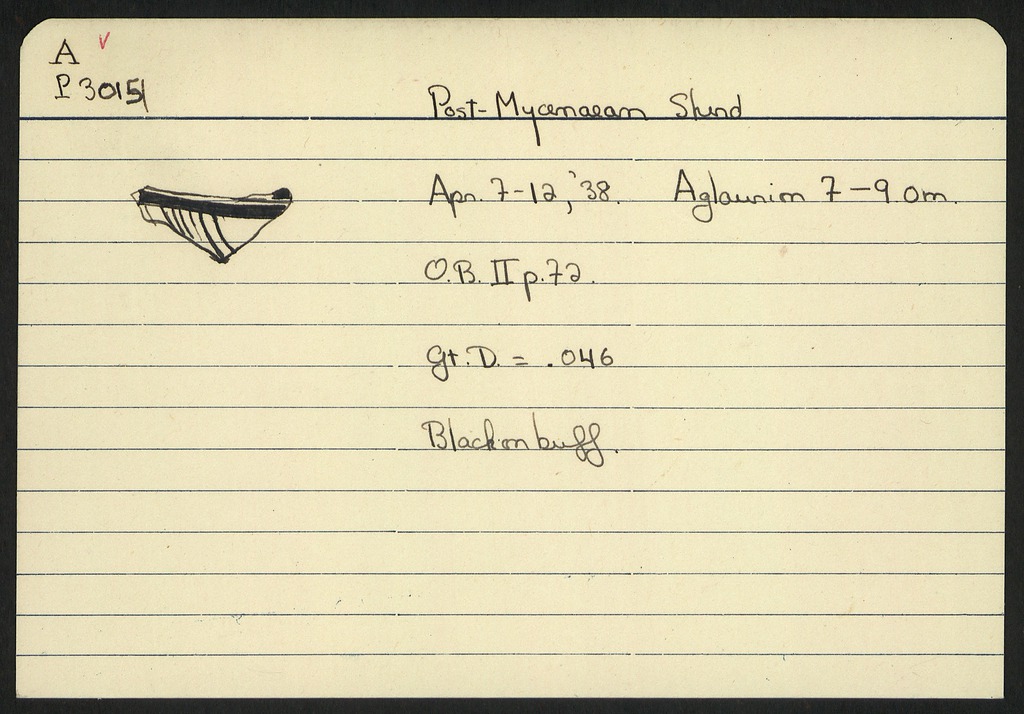 A ✓
P 30151
Post-Mycenaean Sherd
Apr. 7-12, '38. Aglaurion 7-9.0m.
O.B. II p.72.
Gt. D. = .046
Black on buff.